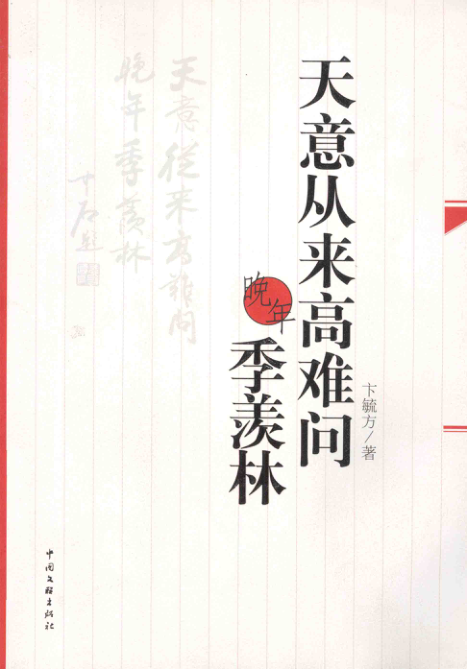 天意从来高难问
晚年
季羡林
卞毓方/著
天意從来高難问
晚年季羡林
十石题
中国文联出版社